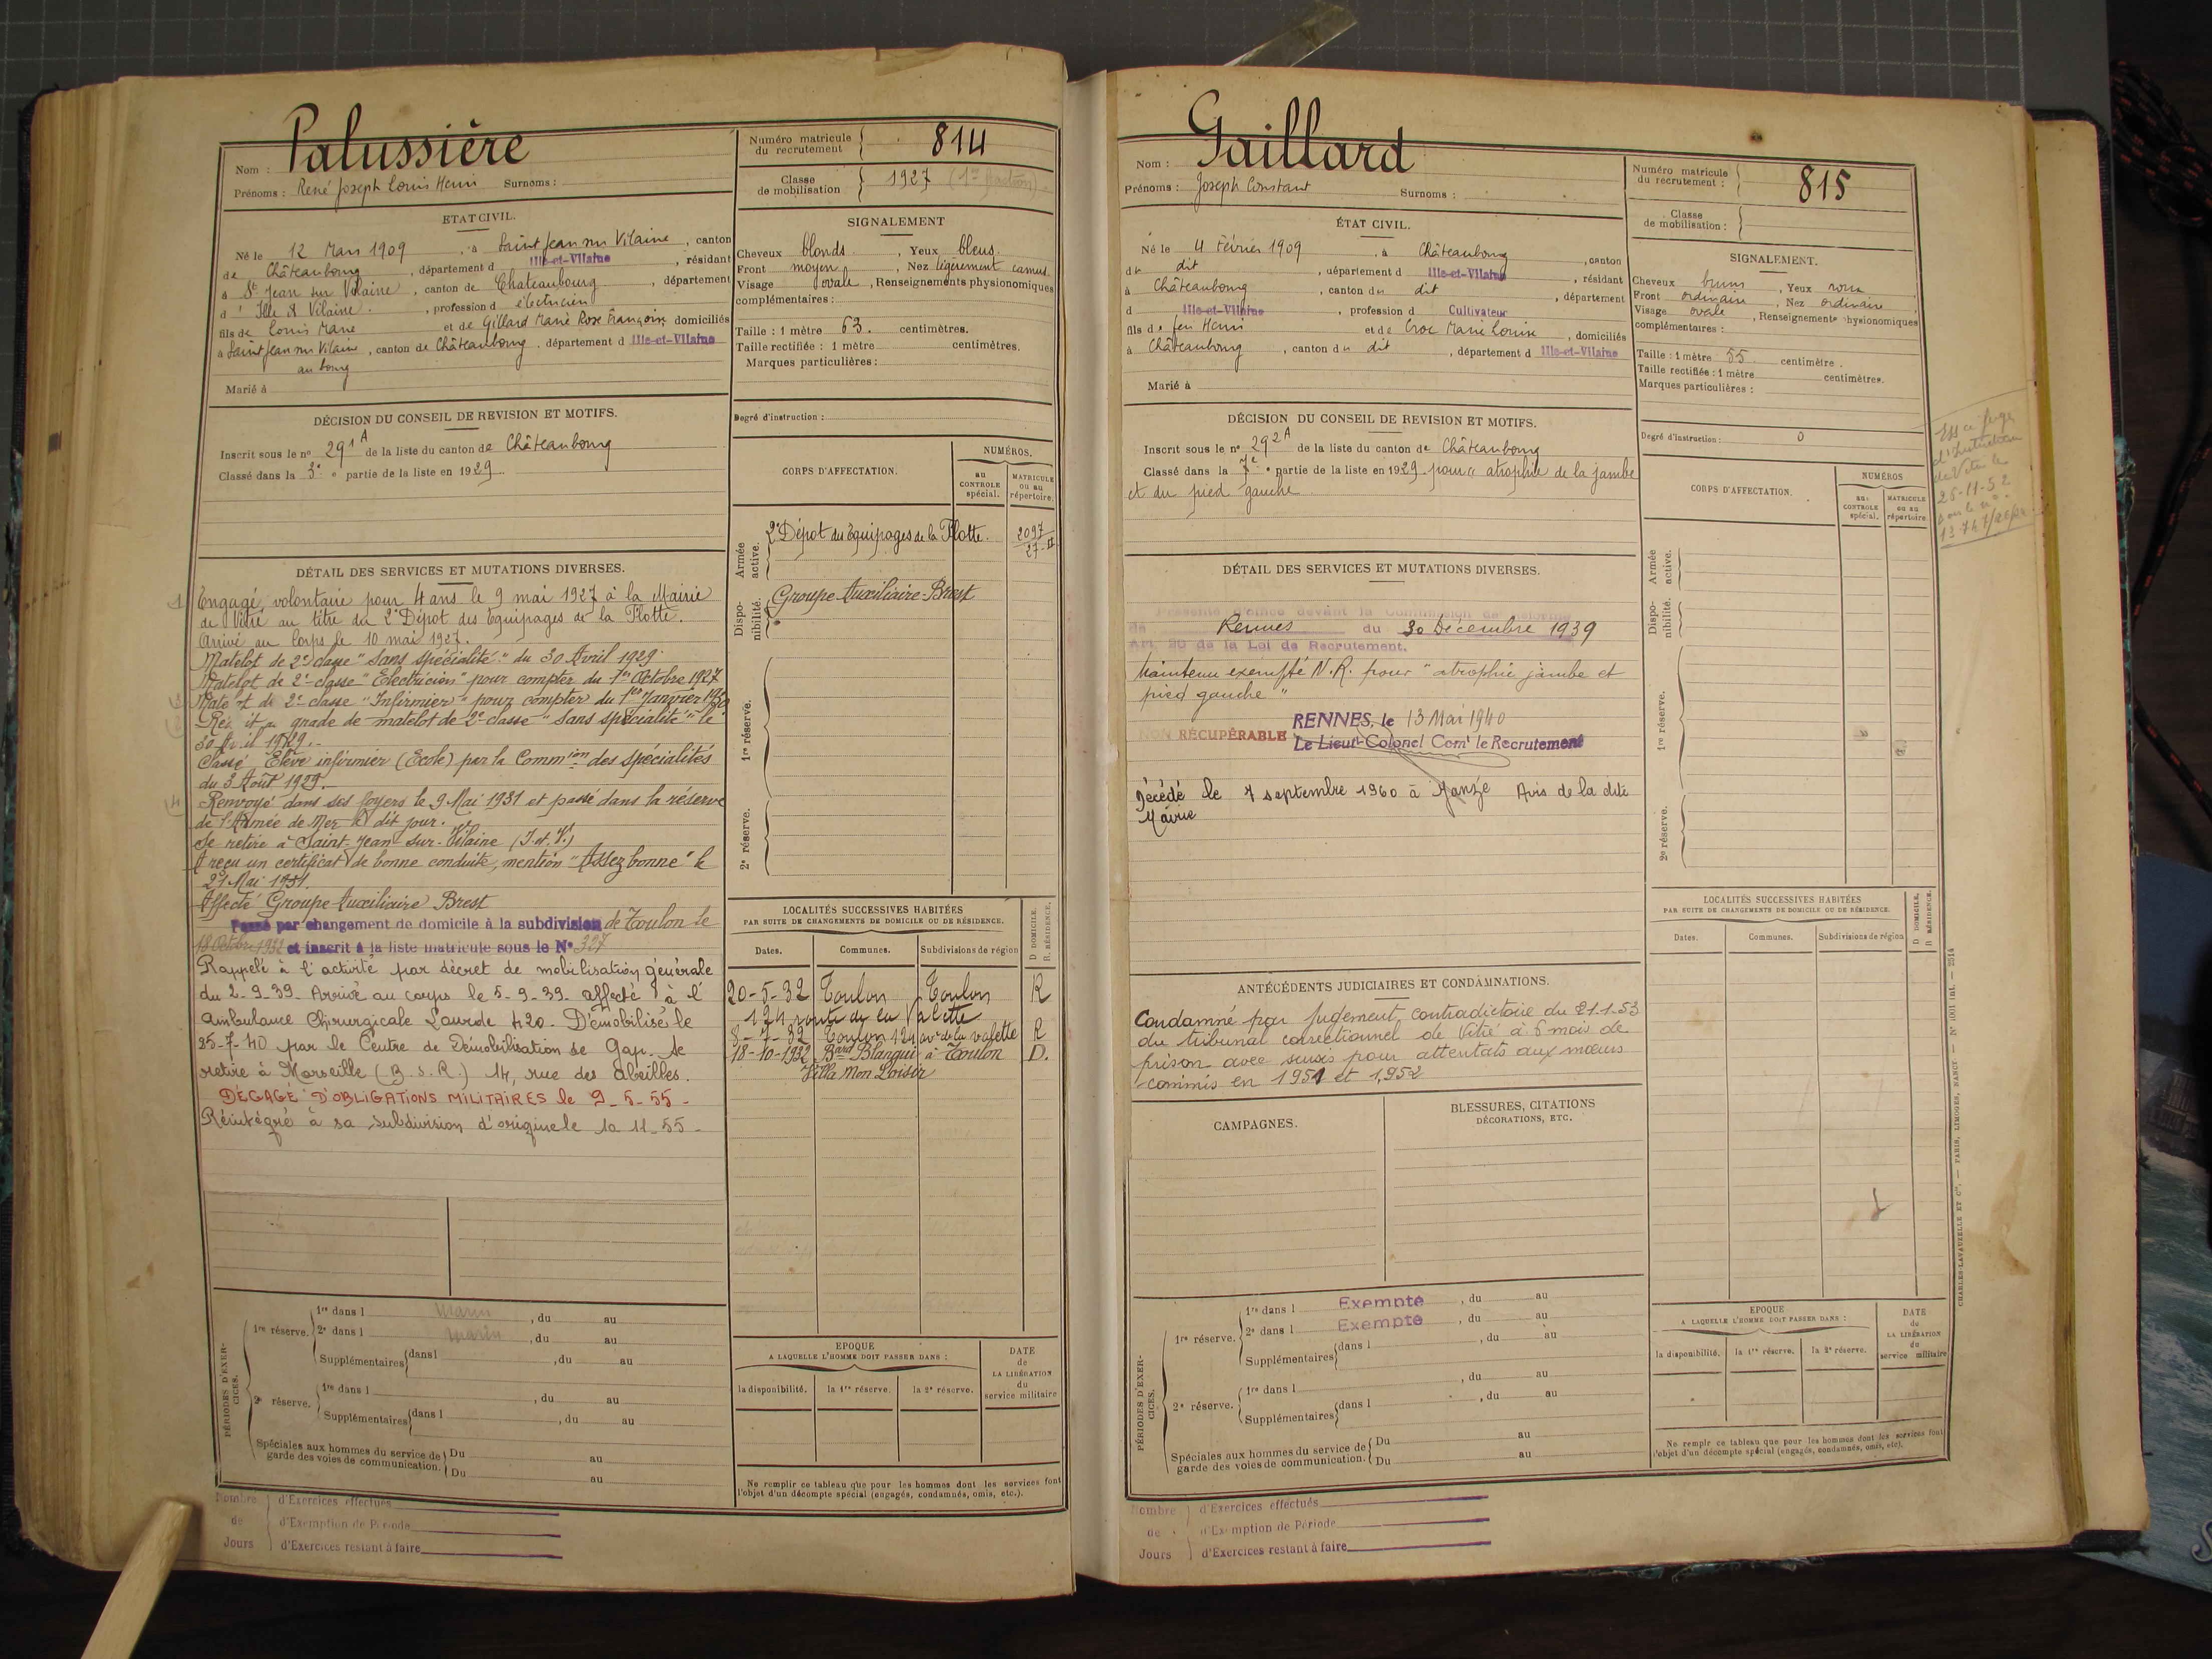 Palussière
Nom :
Prénoms : René Joseph Louis Henri Surnoms :
Numéro matricule du recrutement 814
Classe de mobilisation 1927
ETAT CIVIL.
Né le 12 Mars 1909, à Saint Jean sur Vilaine, canton
de Châteaubourg, département d Ille-et-Vilaine, résidant
à St Jean sur Vilaine, canton de Chateaubourg, département
d' Ille & Vilaine, profession d électricien
fils de Louis Marie et de Gillard Marie Rose Françoise domiciliés
à Saint Jean sur Vilaine, canton de Châteaubourg, département d Ille-et-Vilaine
au bourg
Marié à
SIGNALEMENT
Cheveux blonds, Yeux bleus.
Front moyen, Nez légèrement camus
Visage ovale, Renseignements physionomiques
complémentaires :
Taille : 1 mètre 63. centimètres.
Taille rectifiée : 1 mètre centimètres.
Marques particulières :
Degré d'instruction :
DÉCISION DU CONSEIL DE REVISION ET MOTIFS.
Inscrit sous le no 291 A de la liste du canton de Châteaubourg
Classé dans la 3e e partie de la liste en 1929
CORPS D'AFFECTATION.
NUMÉROS.
au CONTROLE spécial.
MATRICULE ou au répertoire.
Armée active.
2e Dépot des Equipages de la Flotte. 2097
27-II
Dispo-nibilité.
Groupe Auxiliaire Brest
1re réserve.
2e réserve.
DÉTAIL DES SERVICES ET MUTATIONS DIVERSES.
Engagé volontaire pour 4 ans le 9 mai 1927 à la Mairie
de Vitré au titre du 2e Dépot des Equipages de la Flotte.
Arrivé au Corps le 10 mai 1927.
Matelot de 2e classe "Sans spécialité" du 30 Avril 1929
Matelot de 2e classe "Electricien" pour compter du 1er Octobre 1927
Matelot de 2e classe "Infirmier" pour compter du 1er Janvier 1930
grade de matelot de 2e classe "Sans spécialité" le
30 Avril 1929.
Classé Elève infirmier (Ecole) par la Commion des spécialités
du 3 Août 1929.
Renvoyé dans ses foyers le 9 Mai 1931 et passé dans la réserve
de l'Armée de Mer le dit jour.
Se retire à Saint-Jean-sur-Vilaine (I. et V.)
A reçu un certificat de bonne conduite, mention "Assez bonne" le
21 Mai 1931.
Affecté Groupe Auxiliaire Brest
Passé par changement de domicile à la subdivision de Toulon le
18 Octobre 1932 et inscrit à la liste matricule sous le N° 327
Rappelé à l'activité par décret de mobilisation générale
du 2-9-39. Arrivé au corps le 5-9-39. affecté à l'
ambulance Chirurgicale Lourde 420. Démobilisé le
25-7-40 par le Centre de Démobilisation de Gap. Se
retire à Marseille (B.d.R.) 14, rue des abeilles.
DÉGAGÉ D'OBLIGATIONS MILITAIRES le 9-5-55-
Réintégré à sa subdivision d'origine le 10 11-55-
LOCALITÉS SUCCESSIVES HABITÉES
PAR SUITE DE CHANGEMENTS DE DOMICILE OU DE RÉSIDENCE.
Dates. Communes. Subdivisions de région
D DOMICILE. R RÉSIDENCE.
20-5-32 Toulon Toulon R
124 route de la Valette
8-7-32 Toulon 124 av de la valette R
18-10-1932 Bard Blanqui à Toulon D.
Villa Mon Loisir
PÉRIODES D'EXER-CICES.
1re réserve. 1re dans l Marin, du au
2e dans l Marin, du au
Supplémentaires dans l, du au
2e réserve. 1re dans l, du au
Supplémentaires dans l, du au
Spéciales aux hommes du service de garde des voies de communication. Du au
Du au
EPOQUE
A LAQUELLE L'HOMME DOIT PASSER DANS :
la disponibilité. la 1re réserve. la 2e réserve.
DATE de LA LIBÉRATION du service militaire
Ne remplir ce tableau que pour les hommes dont les services font
l'objet d'un décompte spécial (engagés, condamnés, omis, etc.).
Nombre d'Exercices effectués
de d'Exemption de Période
Jours d'Exercices restant à faire
Gaillard
Nom :
Prénoms : Joseph Constant Surnoms :
Numéro matricule du recrutement : 815
Classe de mobilisation :
ÉTAT CIVIL.
Né le 4 Février 1909, à Châteaubourg, canton
du dit, département d Ille-et-Vilaine, résidant
à Châteaubourg, canton du dit, département
d Ille-et-Vilaine, profession d Cultivateur
fils de feu Henri et de Croc Marie Louise, domiciliés
à Châteaubourg, canton du dit, département d Ille-et-Vilaine
Marié à
SIGNALEMENT.
Cheveux bruns, Yeux roux
Front ordinaire, Nez ordinaire
Visage ovale, Renseignements physionomiques
complémentaires :
Taille : 1 mètre 55 centimètre.
Taille rectifiée : 1 mètre centimètres.
Marques particulières :
Degré d'instruction : 0
DÉCISION DU CONSEIL DE REVISION ET MOTIFS.
Inscrit sous le no 292 A de la liste du canton de Châteaubourg
Classé dans la 7e e partie de la liste en 1929 pour "atrophie de la jambe
et du pied gauche
CORPS D'AFFECTATION.
NUMÉROS
au CONTROLE spécial.
MATRICULE ou au répertoire.
Armée active.
Dispo-nibilité.
1re réserve.
2e réserve.
25-11-52
DÉTAIL DES SERVICES ET MUTATIONS DIVERSES.
Présenté d'office devant la Commission de Réforme
de Rennes du 30 Décembre 1939
Art. 20 de la Loi de Recrutement.
Maintenu exempté N.R. pour "atrophie jambe et
pied gauche"
RENNES, le 13 Mai 1940
NON RÉCUPÉRABLE Le Lieut-Colonel Comt le Recrutement
Décédé le 7 septembre 1960 à Janzé Avis de la dite
Mairie
ANTÉCÉDENTS JUDICIAIRES ET CONDAMNATIONS.
Condamné par Jugement contradictoire du 21-1-53
du tribunal correctionnel de Vitré à 6 mois de
prison avec sursis pour attentats aux mœurs
commis en 1951 et 1952
CAMPAGNES.
BLESSURES, CITATIONS
DÉCORATIONS, ETC.
LOCALITÉS SUCCESSIVES HABITÉES
PAR SUITE DE CHANGEMENTS DE DOMICILE OU DE RÉSIDENCE.
Dates. Communes. Subdivisions de région
D DOMICILE. R RÉSIDENCE.
PÉRIODES D'EXER-CICES.
1re réserve. 1re dans l Exempté, du au
2e dans l Exempté, du au
Supplémentaires dans l, du au
2e réserve. 1re dans l, du au
Supplémentaires dans l, du au
Spéciales aux hommes du service de garde des voies de communication. Du au
Du au
EPOQUE
A LAQUELLE L'HOMME DOIT PASSER DANS :
la disponibilité. la 1re réserve. la 2e réserve.
DATE du LA LIBÉRATION du service militaire
Ne remplr ce tableau que pour les hommes dont les services font
l'objet d'un décompte spécial (engagés, condamnés, omis, etc).
CHARLES-LAVAUZELLE ET Cie. — PARIS, LIMOGES, NANCY — N° 1001 int. — 2514
Nombre d'Exercices effectués
de d'Exemption de Période
Jours d'Exercices restant à faire